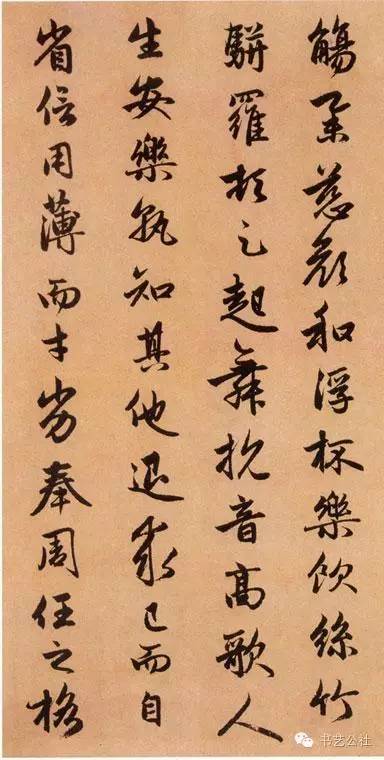 觴舉慈顏和浮杯樂飲絲竹
駢羅頓足起舞抗音高歌人
生安樂孰知其他退求己而自
省信用薄而才劣奉周任之格
书艺公社